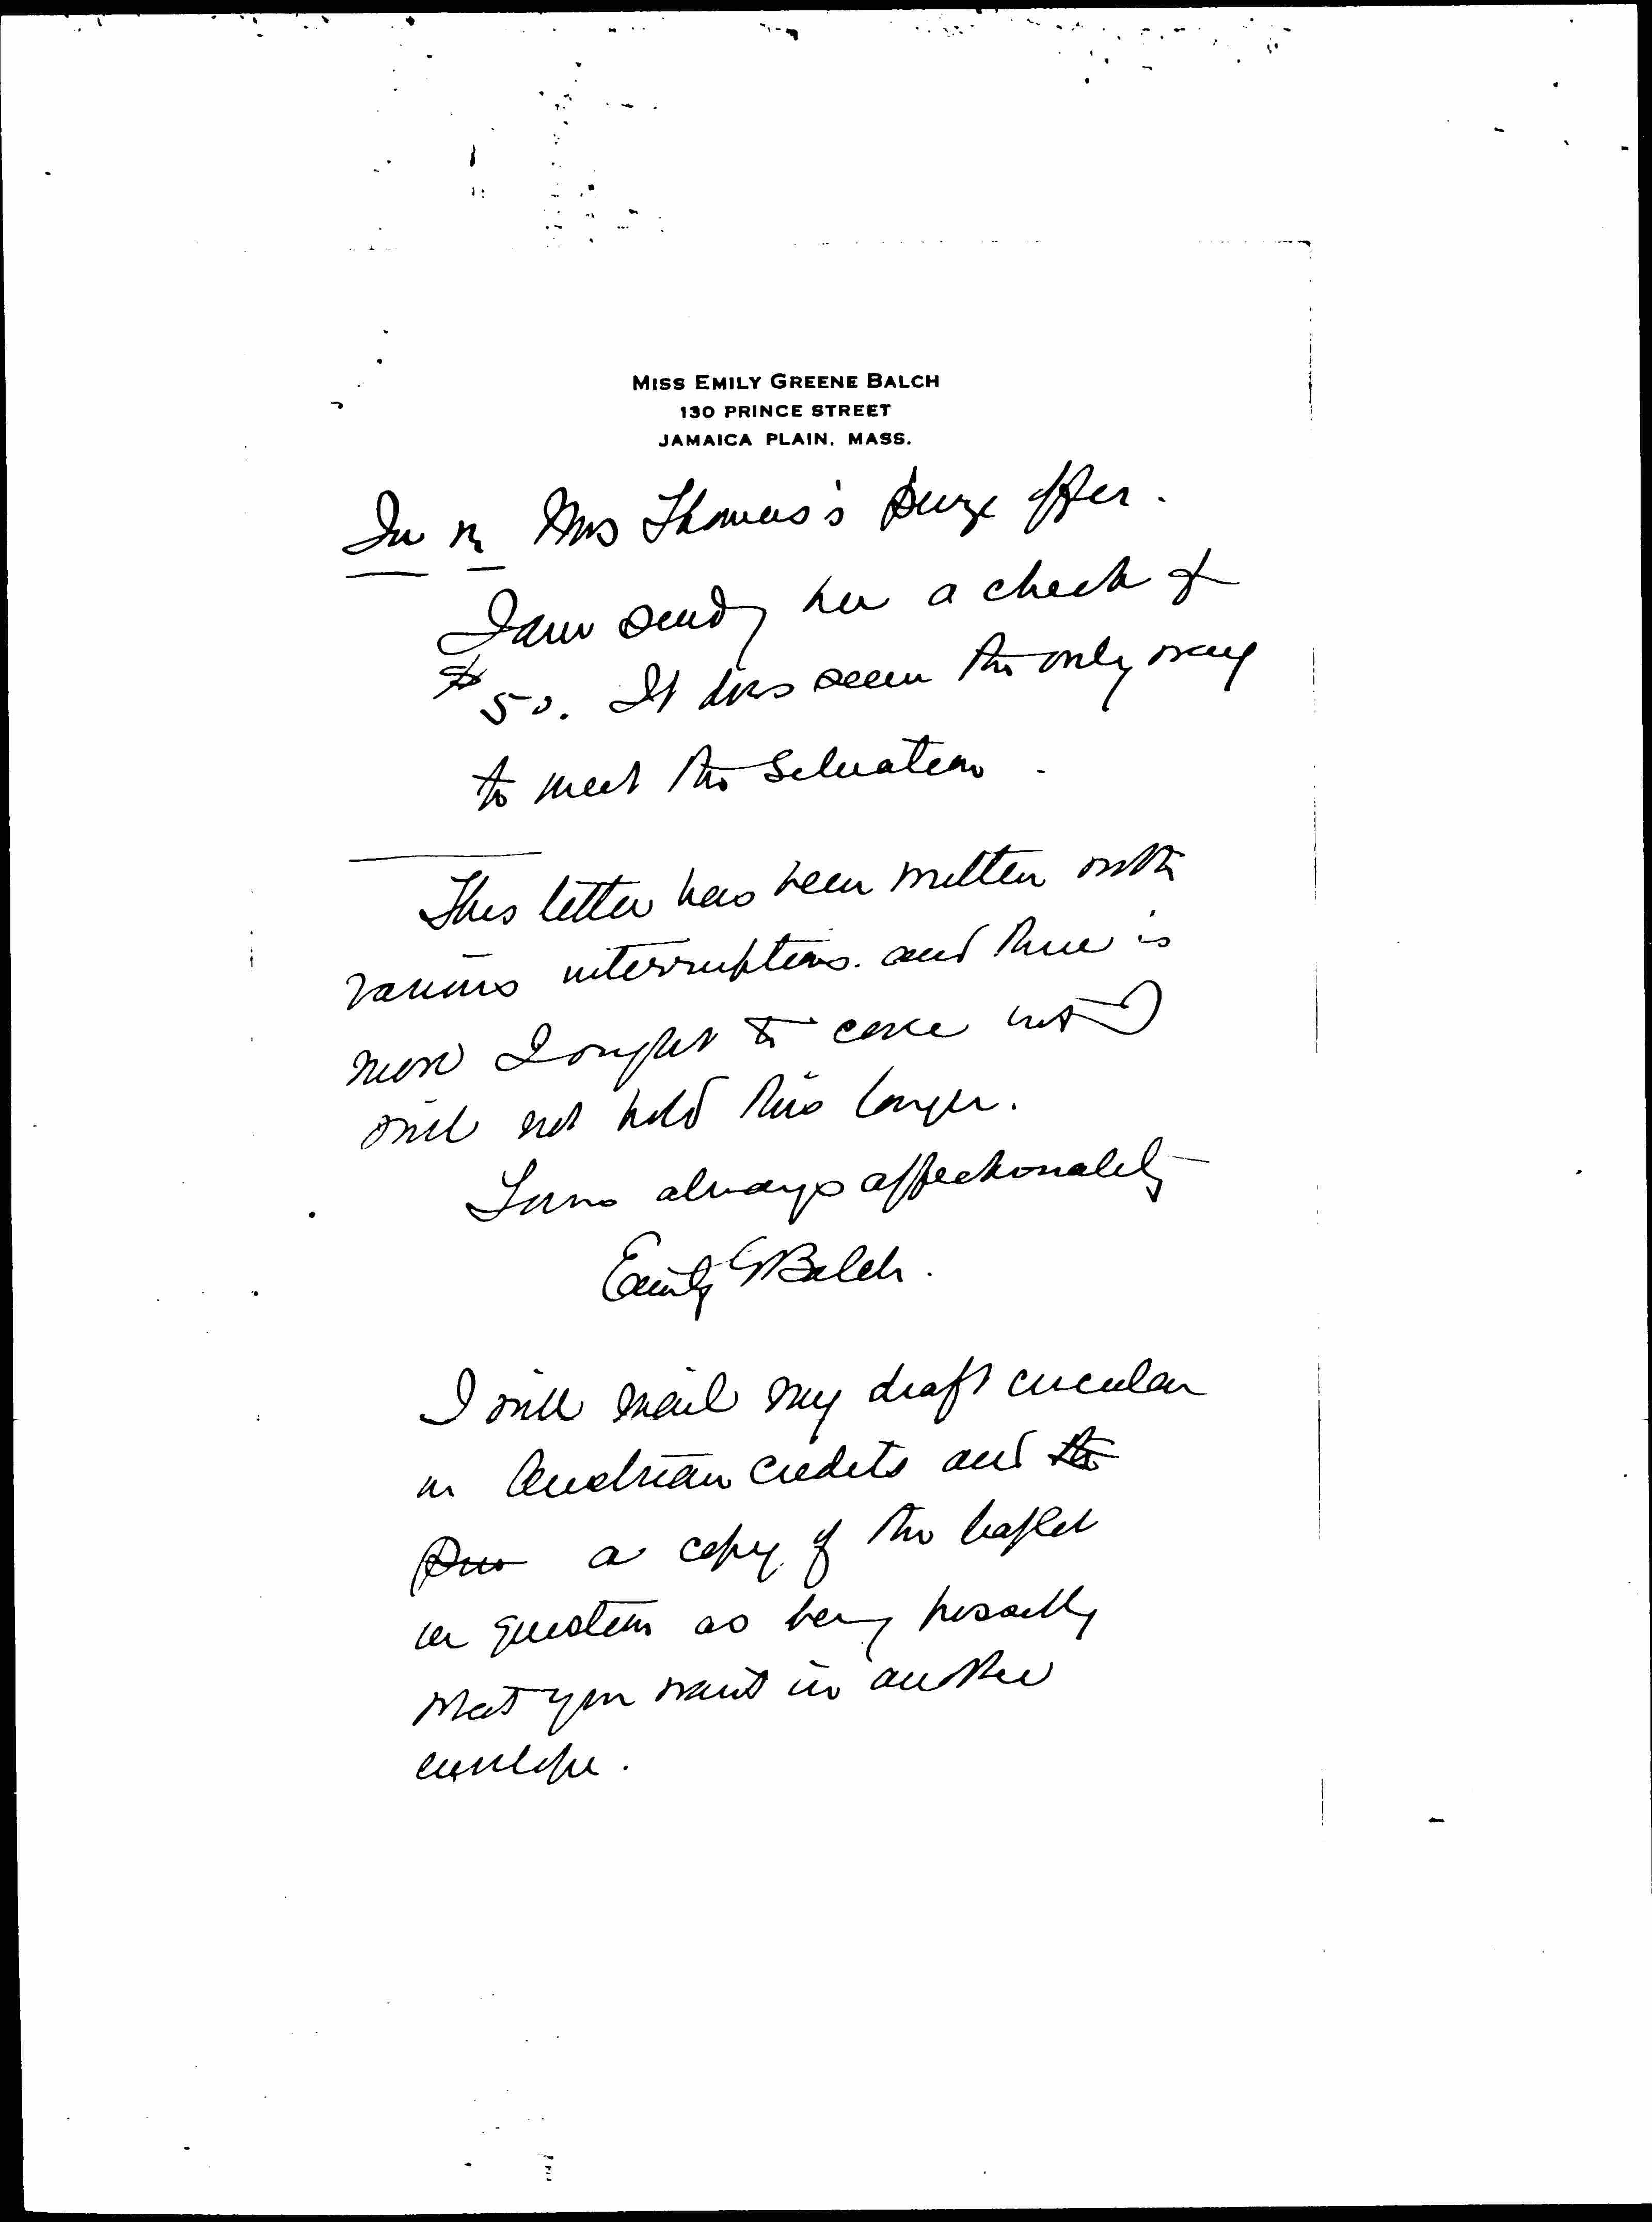 MISS EMILY GREENE BALCH
130 PRINCE STREET
JAMAICA PLAIN, MASS.
In re Mrs Thomas's prize offer.
I am sending her a check of
$50. It does seem the only way
to meet the situation.
This letter has been written with
various interruptions. and there is
more I ought to cover but I
will not hold this longer.
Yours always affectionately
Emily G Balch.
I will mail my draft circular
on Austrian credits and the
a copy of the leaflet
in question as being possibly
what you want in another
envelope.